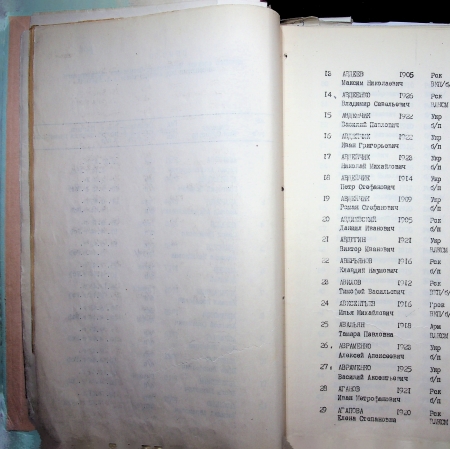 13 АВДЕЕВ 1905 Рок
Максим Николаевич ВКП/б/
14. АВДЕЕНКО 1926 Рок
Владимир Савельевич ВЛКСМ
15 АВДЕЙЧИК 1922 Укр
Василий Павлович б/п
16 АВДЕЙЧИК 1922 Укр
Иван Григорьевич б/п
17 АВДЕЙЧИК 1923 Укр
Николай Михайлович б/п
18 АВДЕЙЧИК 1914 Укр
Петр Стефанович б/п
19 АВДЕЙЧИК 1909 Укр
Роман Стефанович б/п
20 1905 Рок
Даниил Иванович б/п
21 1921 Укр
Виктор Иванович ВЛКСМ
22 АВЕРЬЯНОВ 1916 Рок
Клавдий б/п
23 1912 Рок
Тимофей Васильевич ВКП/б/
24 1916 Грек
Илья Михайлович ВКП/б/
25 1918 Арм
Тамара Павловна ВЛКСМ
26. АВРАМЕНКО 1922 Укр
Алексей Алексеевич б/п
27. АВРАМЕНКО 1925 Укр
Василий б/п
28 АГАНОВ 1921 Рок
Иван Митрофанович б/п
29 АГАПОВА 1920 Рок
Елена Степановна ВЛКСМ